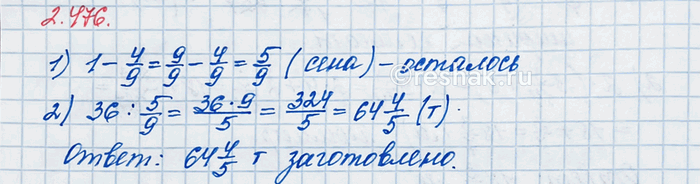 2.476.
1) 1 - 4/9 = 9/9 - 4/9 = 5/9 (сена) - осталось
reshak.ru
2) 36 : 5/9 = 36·9/5 = 324/5 = 64 4/5 (т).
Ответ: 64 4/5 т заготовлено.